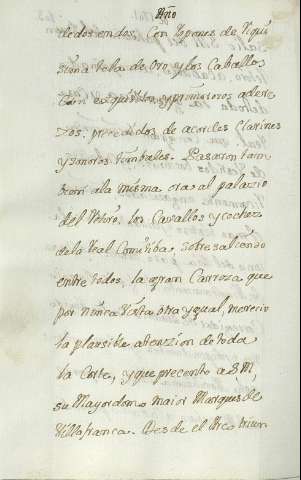 Año
dedos en dos. Con tapones de riqui
sima tela de Oro, y los Caballos
tan exquisitos, y primorosos adere
zos, precedidos de acordes Clarines
y sonoros timbales. Pasaron tam
bien a la misma ora al palazio
del Retiro, los Cavallos y coches
de la Real Comitiba, sobresaliendo
entre todos, la gran Carroza que
por núnca vista otra ygual, merecio
la plausible atenzion de toda
la Corte, y que presento a S.M,
su Mayordomo maior Marques de
Villafranca. Desde el Arco triun